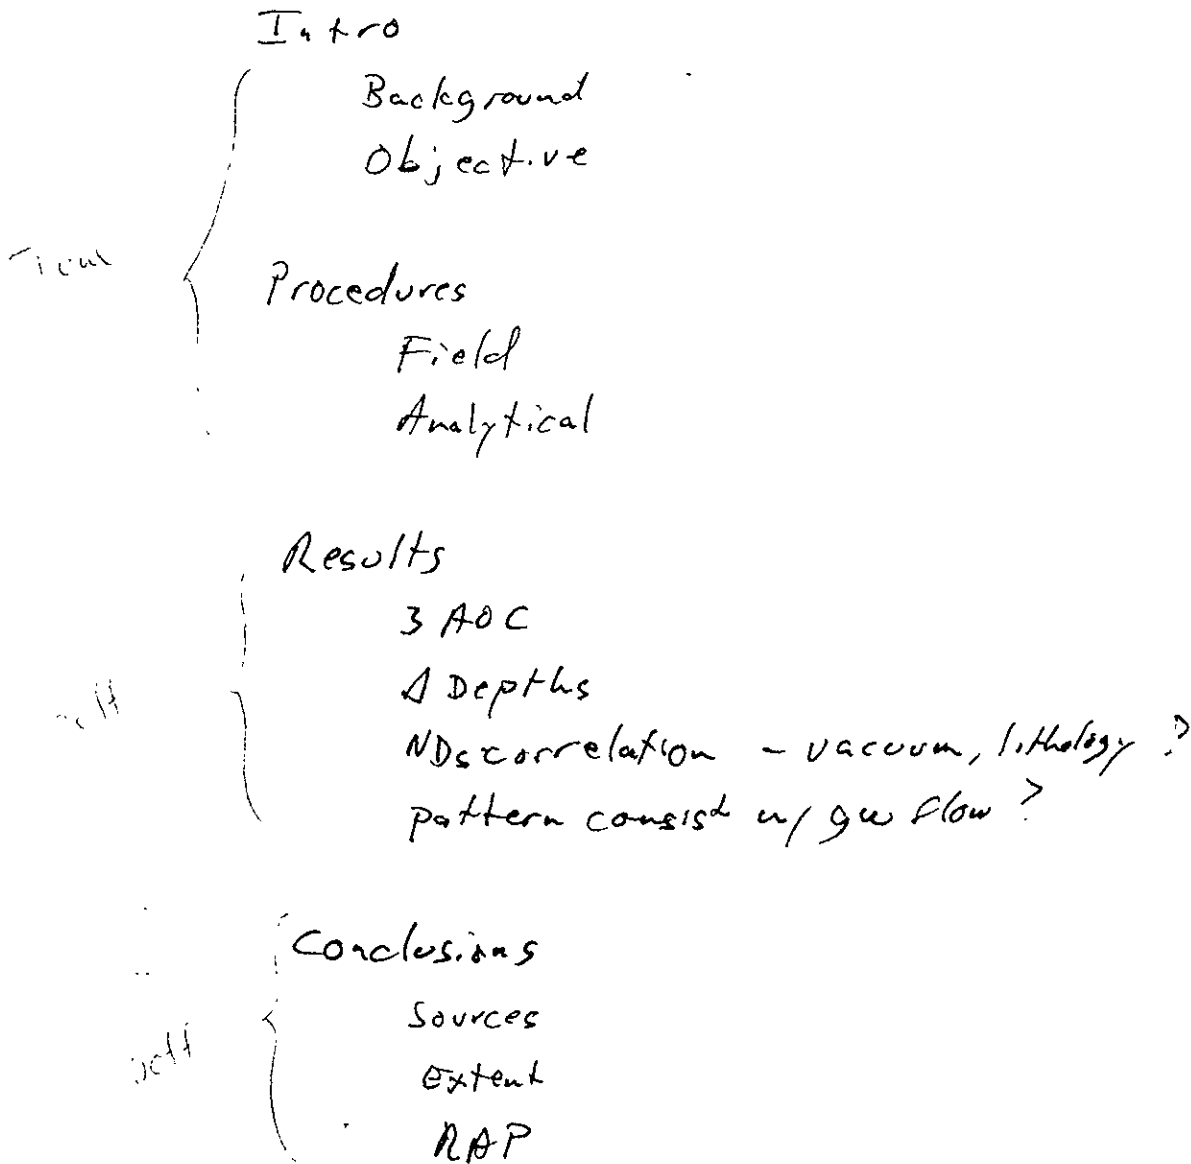 Intro
Background
Objective
Procedures
Field
Analytical
Results
3 AOC
Δ Depths
NDs correlation - vacuum, lithology ?
pattern consist w/ gw flow ?
Conclusions
Sources
Extent
RAP